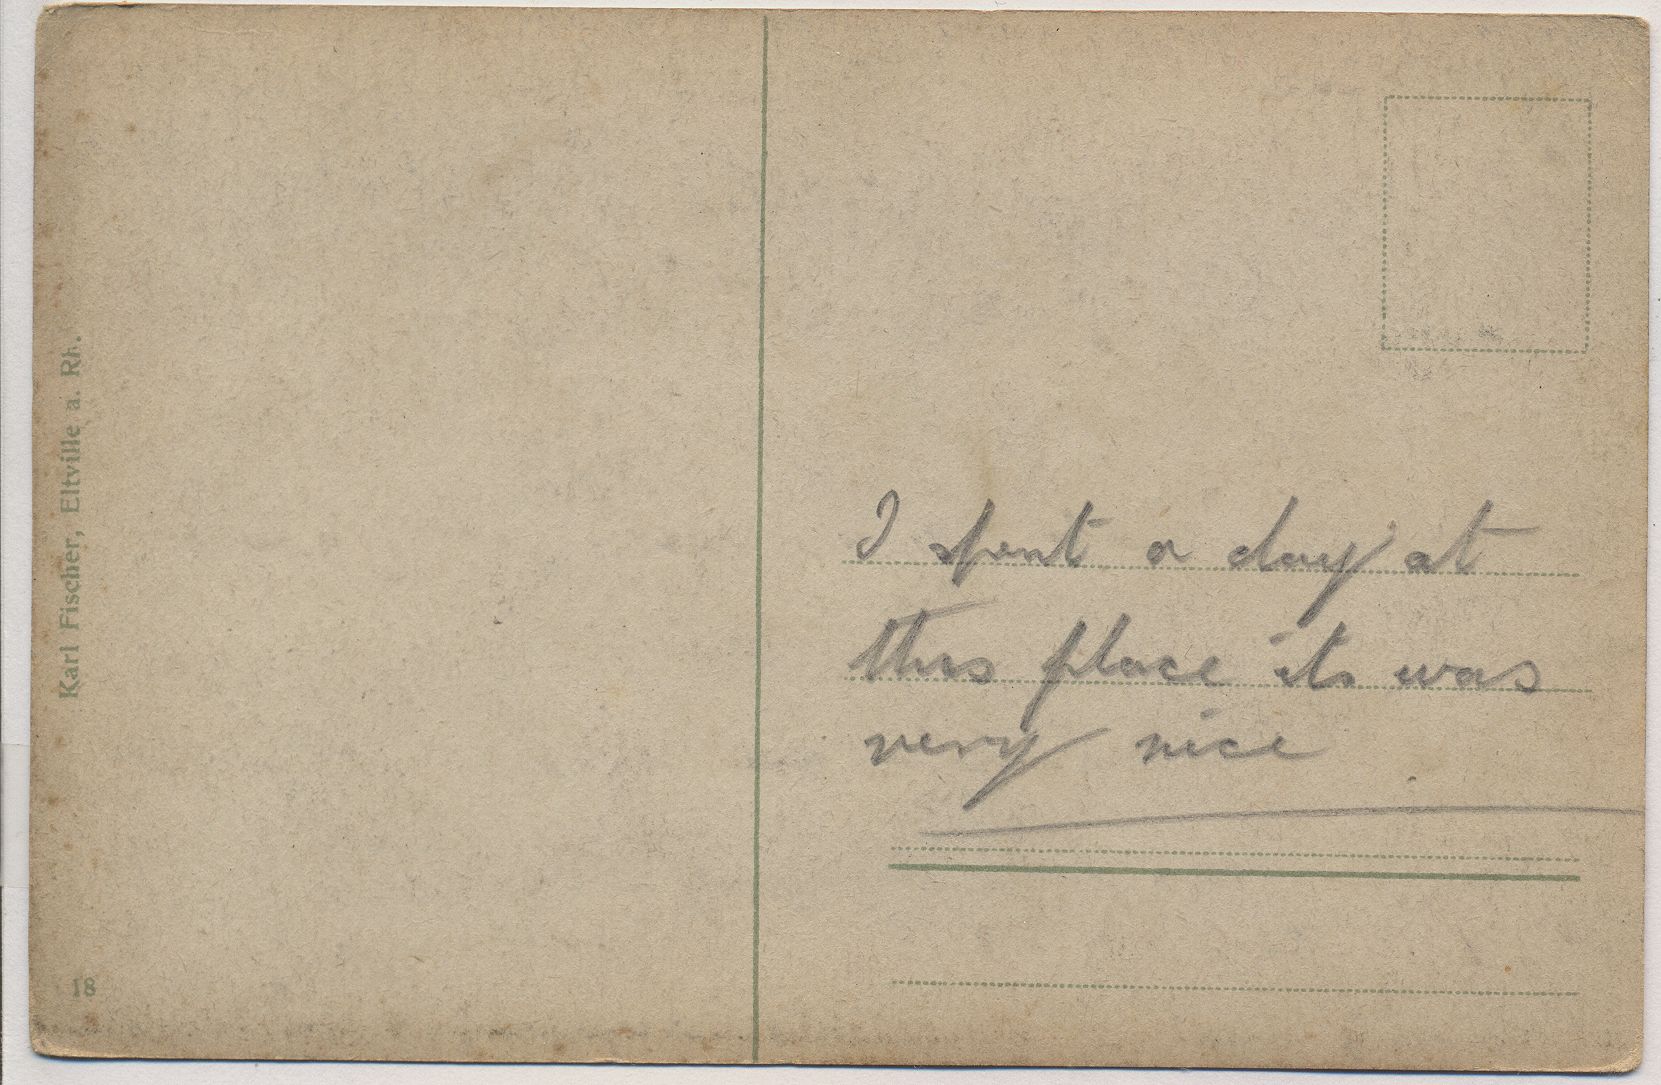 Karl Fischer, Eltville a. Rh.
18
I spent a day at
this place its was
very nice